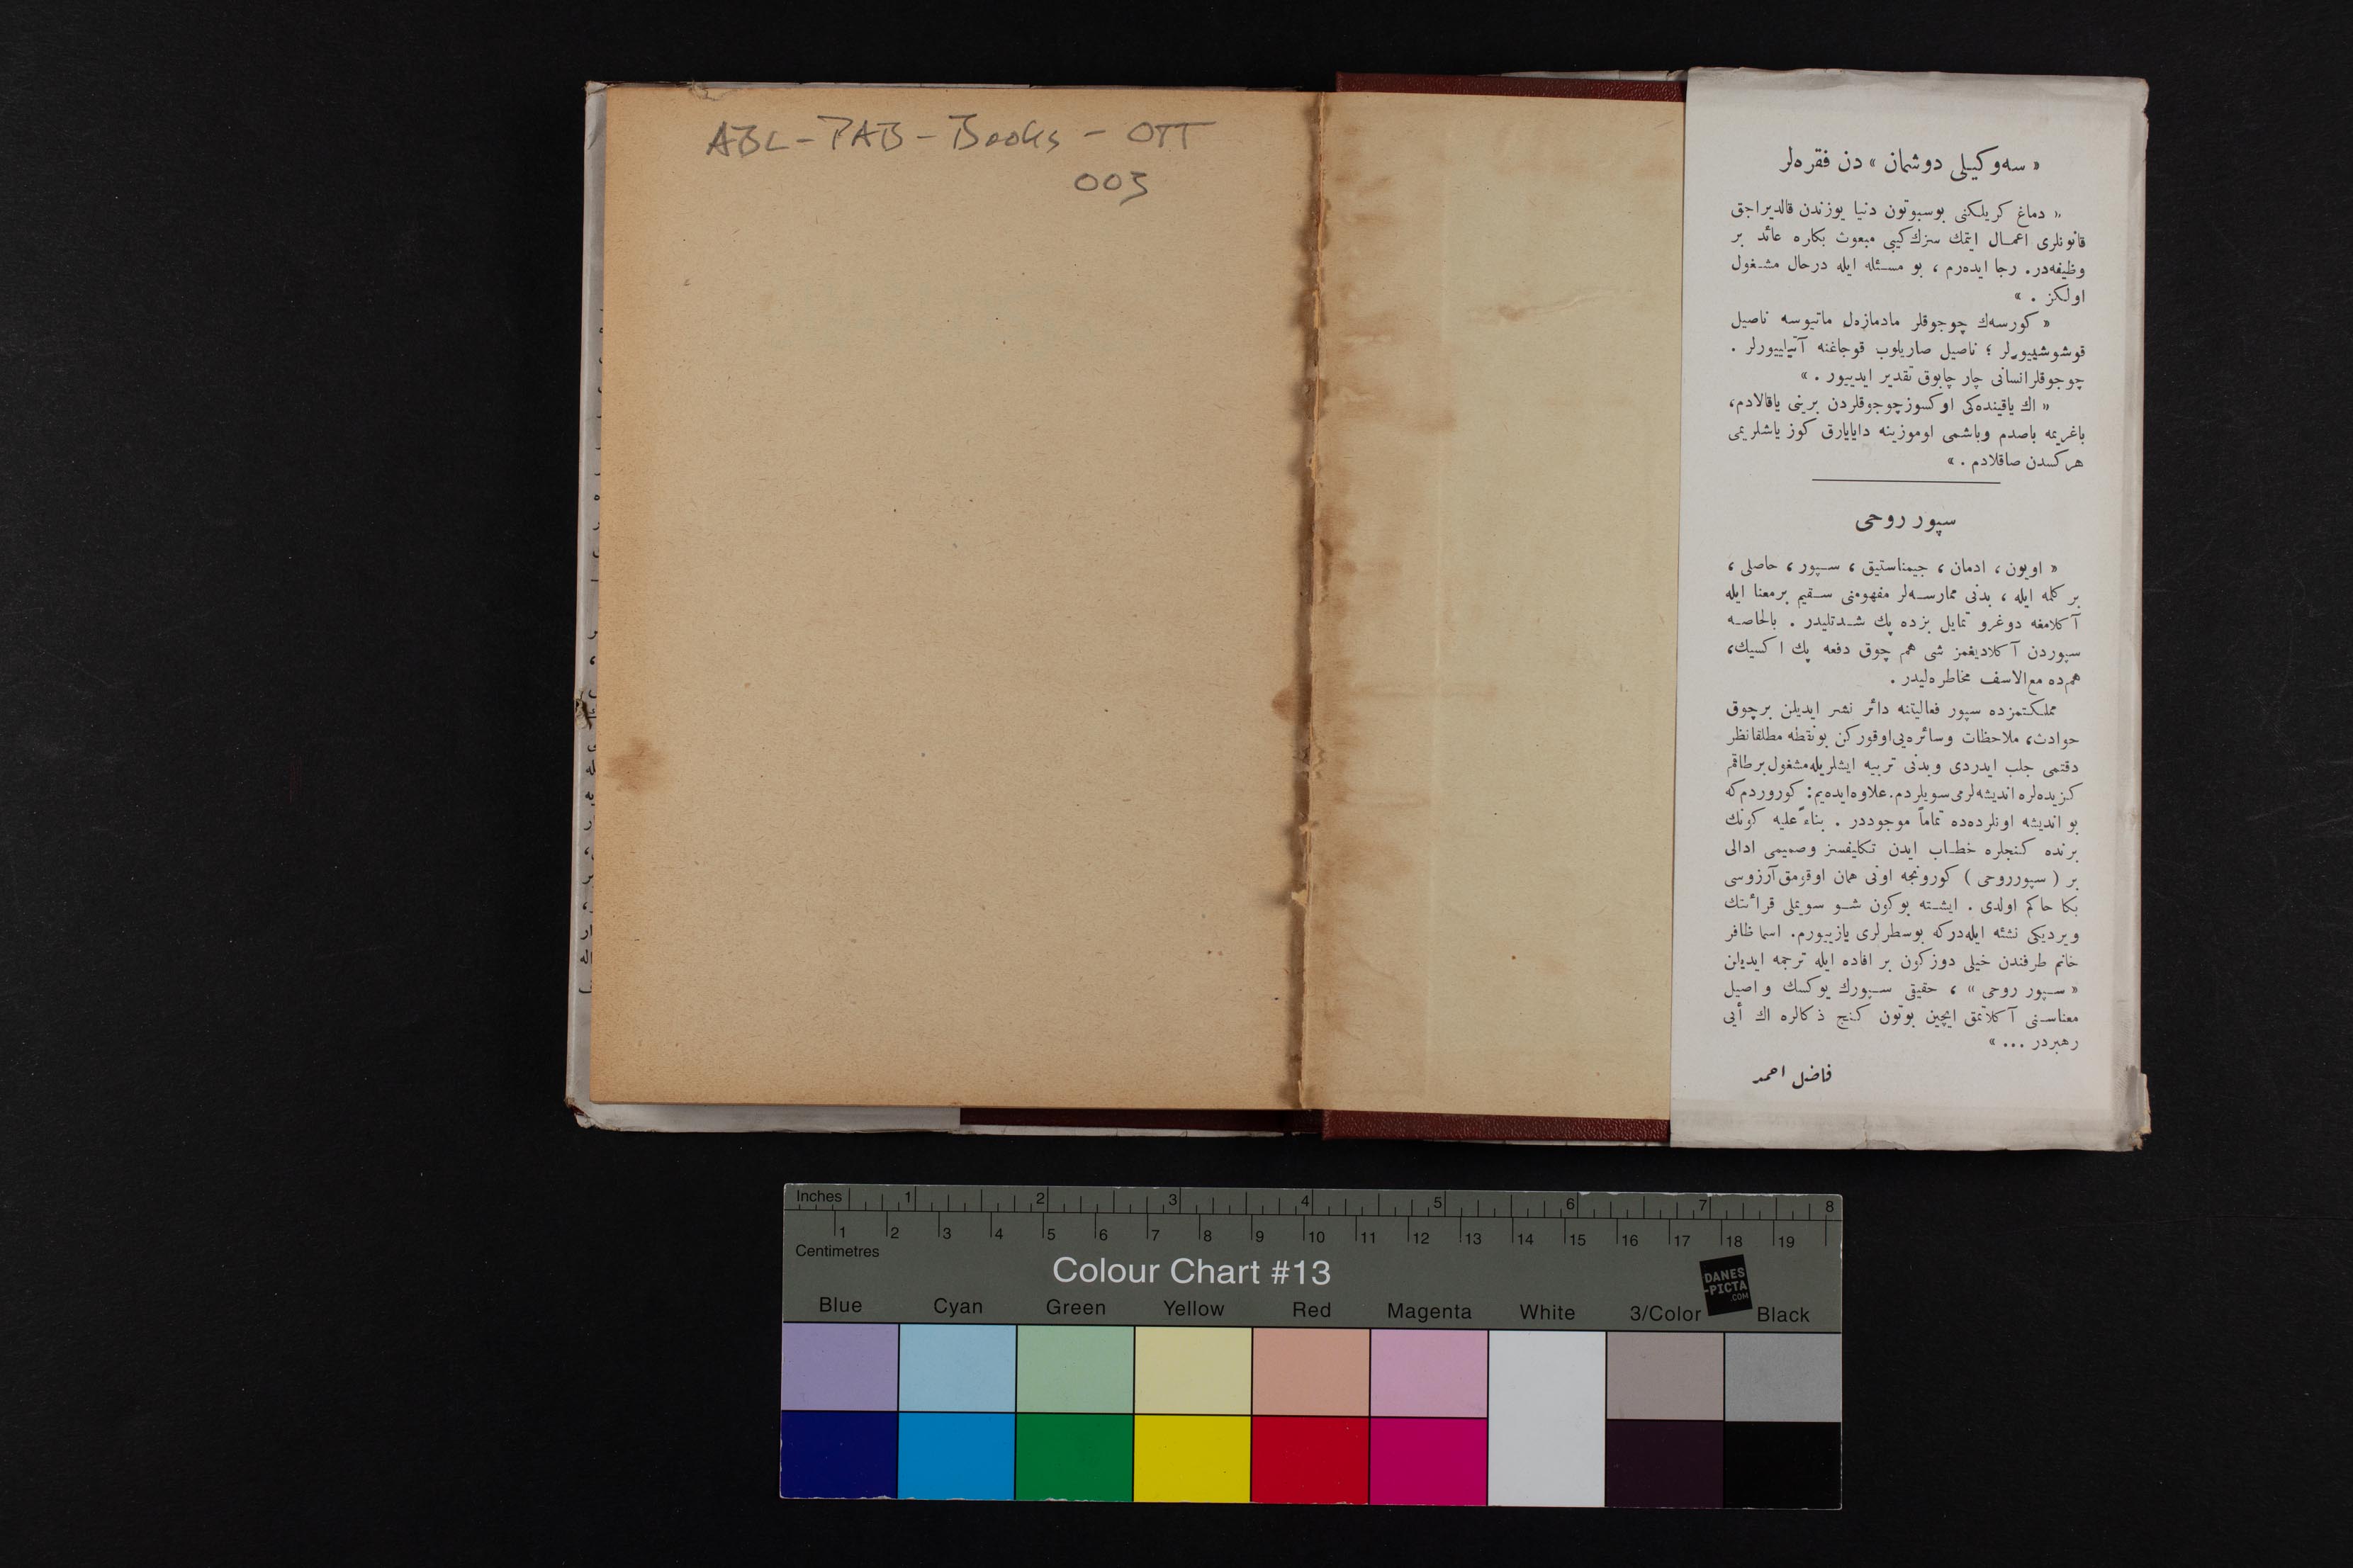 ABL-PAB-Books-OTT
003
« سه‌وكیلی دوشمان » دن فقره‌لر
« دماغ كریلكنی بوسبوتون دنیا یوزندن قالدیراجق
قانونلری اعمال ایتمك سزك كیبی مبعوث بكاره عائد بر
وظیفه‌در. رجا ایده‌رم ، بو مسئله ایله درحال مشغول
اولكز . »
« كورسه‌ك چوجوقلر مادمازه‌ل ماتیوسه ناصیل
قوشوشییورلر ؛ ناصیل صاریلوب قوجاغنه آتیلییورلر .
چوجوقلر انسانی چار چابوق تقدیر ایدییور . »
« اك یاقینده‌كی اوكسوز چوجوقلردن برینی یاقالادم،
باغریمه باصدم وباشمی اوموزینه دایایارق كوز یاشلریمی
هركسدن صاقلادم . »
سپور روحی
« اویون ، ادمان ، جیمناستیق ، سپور ، حاصلی ،
بر كلمه ایله ، بدنی ممارسه‌لر مفهومنی سقیم برمعنا ایله
آكلامغه دوغرو تمایل بزده پك شدتلیدر . بالخاصه
سپوردن آكلادیغمز شی هم چوق دفعه پك اكسیك،
هم‌ده مع‌الاسف مخاطره‌لیدر .
مملكتمزده سپور فعالیتنه دائر نشر ایدیلن برچوق
حوادث، ملاحظات وسائره‌یی اوقوركن بونقطه مطلقا نظر
دقتمی جلب ایدردی وبدنی تربیه ایشلریله مشغول برطاقم
كزیده‌لره اندیشه‌لرمی سویلردم. علاوه ایده‌یم: كوروردم كه
بو اندیشه اونلرده‌ده تماماً موجوددر . بناءً علیه كونك
برنده كنجلره خطاب ایدن تكلیفسز وصمیمی ادالی
بر ( سپورروحی ) كورونجه اونی همان اوقومق آرزوسی
بكا حاكم اولدی . ایشته بوكون شو سویملی قرائتك
ویردیكی نشئه ایله‌دركه بوسطرلری یازییورم. اسما ظافر
خانم طرفندن خیلی دوزكون بر افاده ایله ترجمه ایدیلن
« سپور روحی » ، حقیقی سپورك یوكسك واصیل
معناسنی آكلاتمق ایچین بوتون كنج ذكالره اك أیی
رهبردر ... »
فاضل احمد
Inches 1 2 3 4 5 6 7 8
1 2 3 4 5 6 7 8 9 10 11 12 13 14 15 16 17 18 19
Centimetres
Colour Chart #13
DANES
-PICTA
.COM
Blue Cyan Green Yellow Red Magenta White 3/Color Black